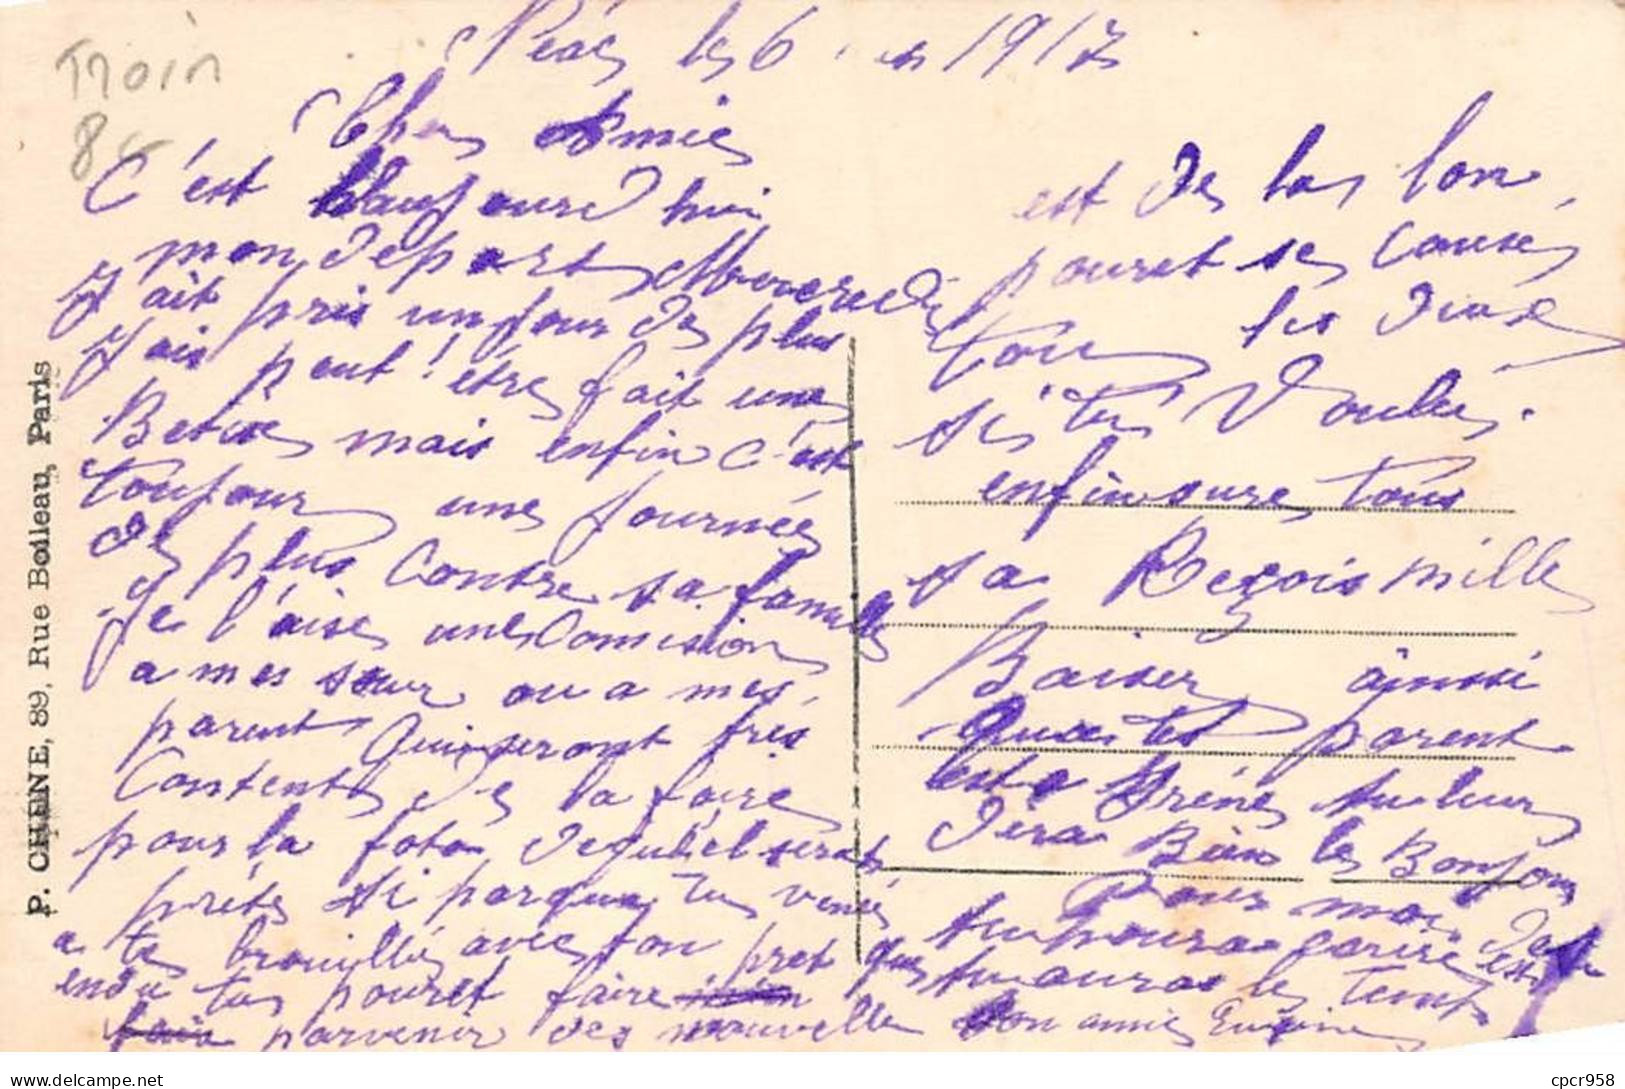 le 6 1917
Cher Amie
C'est aujourd hui
mon depart Mercredi
J'ait pris un jour de plus
J'ais peut! etre fait une
Betise mais enfin c'est
toujour une journée
de plus contre sa famille
Je l'aise une Comision
a mes seur ou a mes
parent Qui seront tres
Content de la faire
pour la foto sera
prete si par tu
a te brouillé avec ton pret que
endu tu pouret faire
parvenir des nouvelle
est de la lon
pouret se cause
tou les deux
si tu Voulée.
enfin sure tous
sa Reçois mille
Baiser ainsi
Que tes parent
est a Iréne tu leur
dera Bien le Bonjour
Pour moi
tu poura
tu auras le temp
Ton amie
P. CHENE, 89, Rue Boileau, Paris
cpcr958